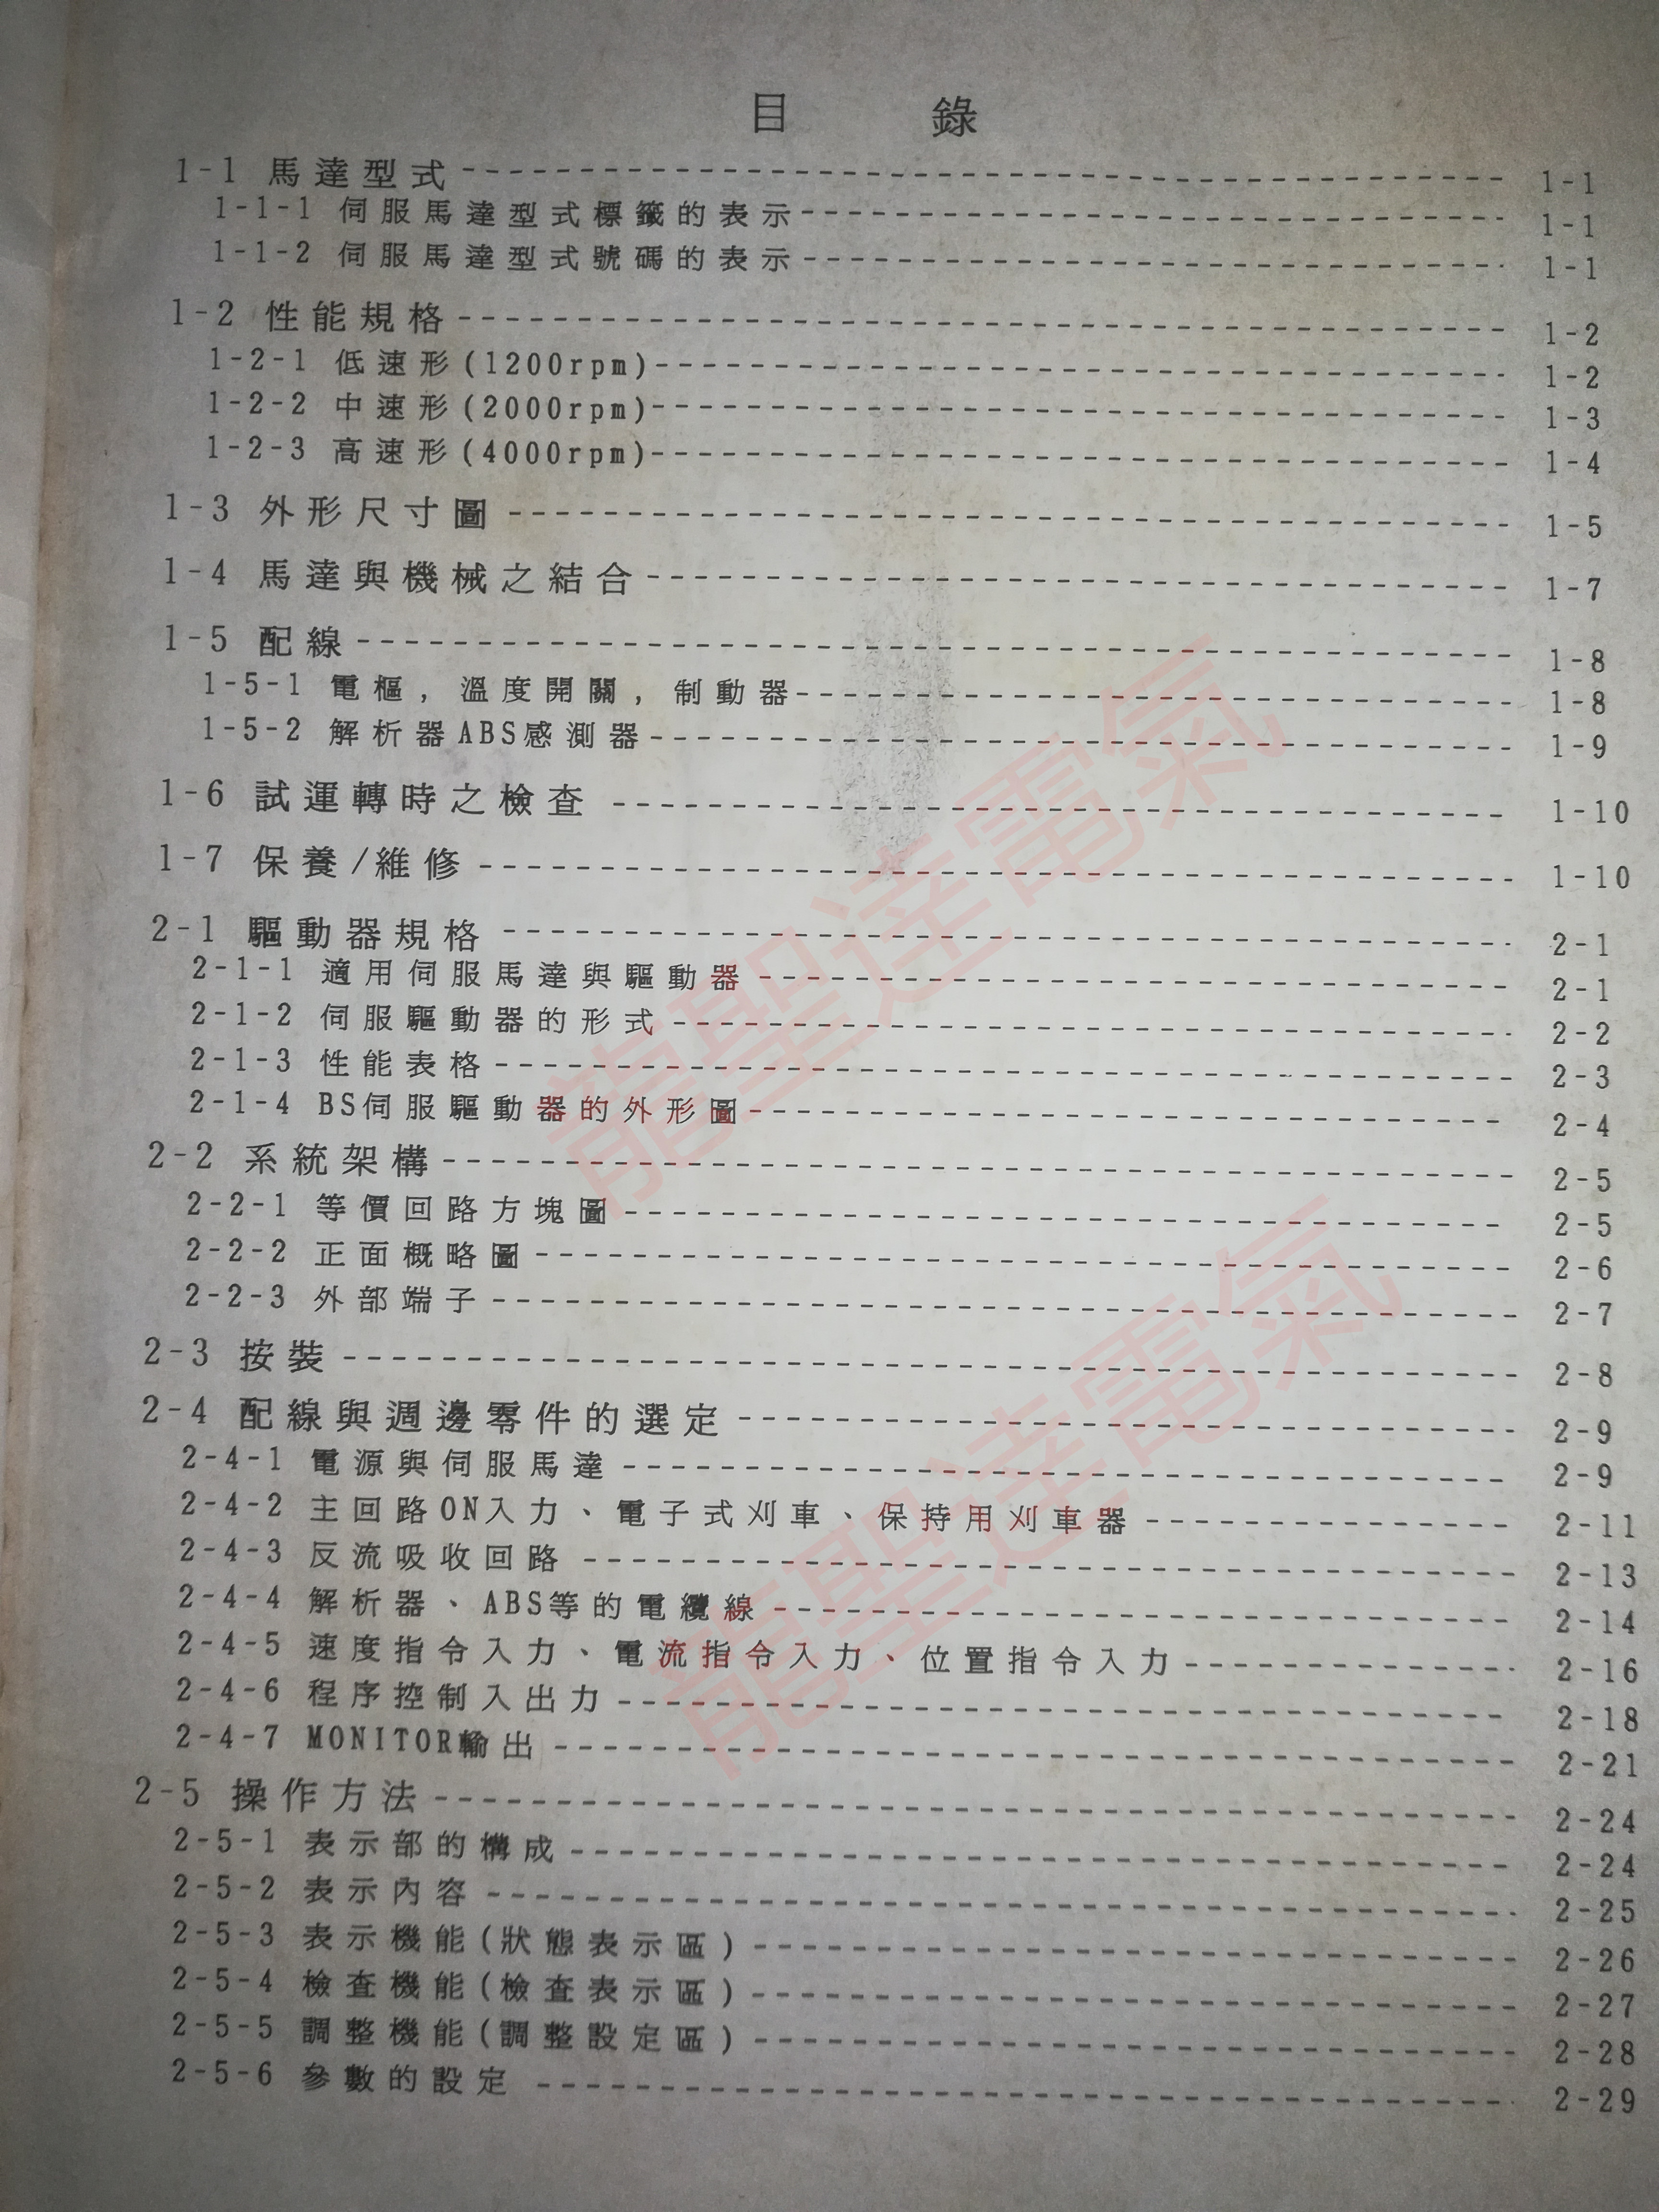 目 錄
1-1 馬達型式 1-1
1-1-1 伺服馬達型式標籤的表示 1-1
1-1-2 伺服馬達型式號碼的表示 1-1
1-2 性能規格 1-2
1-2-1 低速形(1200rpm) 1-2
1-2-2 中速形(2000rpm) 1-3
1-2-3 高速形(4000rpm) 1-4
1-3 外形尺寸圖 1-5
1-4 馬達與機械之結合 1-7
1-5 配線 1-8
1-5-1 電樞, 溫度開關, 制動器 1-8
1-5-2 解析器ABS感測器 1-9
1-6 試運轉時之檢查 1-10
1-7 保養/維修 1-10
2-1 驅動器規格 2-1
2-1-1 適用伺服馬達與驅動器 2-1
2-1-2 伺服驅動器的形式 2-2
2-1-3 性能表格 2-3
2-1-4 BS伺服驅動器的外形圖 2-4
2-2 系統架構 2-5
2-2-1 等價回路方塊圖 2-5
2-2-2 正面概略圖 2-6
2-2-3 外部端子 2-7
2-3 按裝 2-8
2-4 配線與週邊零件的選定 2-9
2-4-1 電源與伺服馬達 2-9
2-4-2 主回路ON入力、電子式刈車、保持用刈車器 2-11
2-4-3 反流吸收回路 2-13
2-4-4 解析器、ABS等的電纜線 2-14
2-4-5 速度指令入力、電流指令入力、位置指令入力 2-16
2-4-6 程序控制入出力 2-18
2-4-7 MONITOR輸出 2-21
2-5 操作方法 2-24
2-5-1 表示部的構成 2-24
2-5-2 表示內容 2-25
2-5-3 表示機能(狀態表示區) 2-26
2-5-4 檢查機能(檢查表示區) 2-27
2-5-5 調整機能(調整設定區) 2-28
2-5-6 參數的設定 2-29
龍聖達電氣
龍聖達電氣